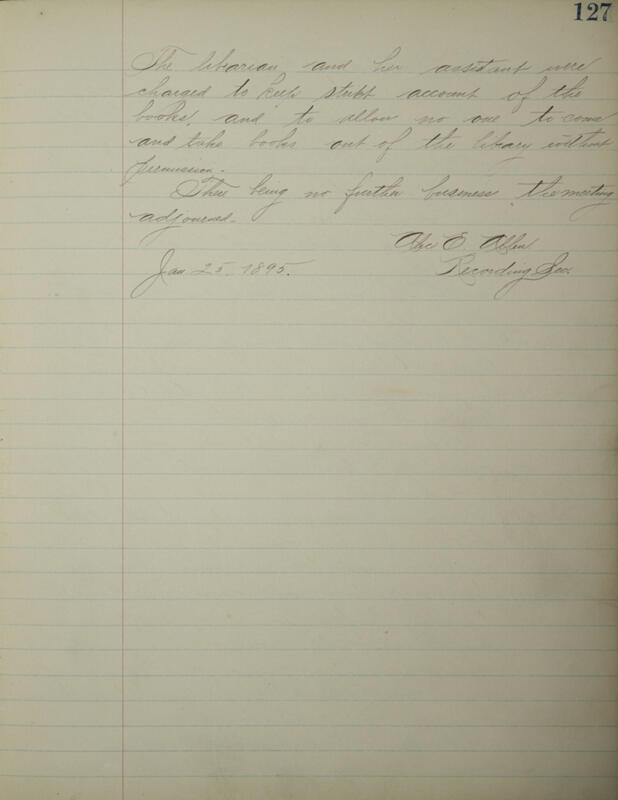 127
The librarian and her assistant were
charged to keep strict account of the
books, and to allow no one to come
and take books out of the library without
permission.
There being no further business the meeting
adjourned.
E. Allen
Jan 25. 1895. Recording Sec.